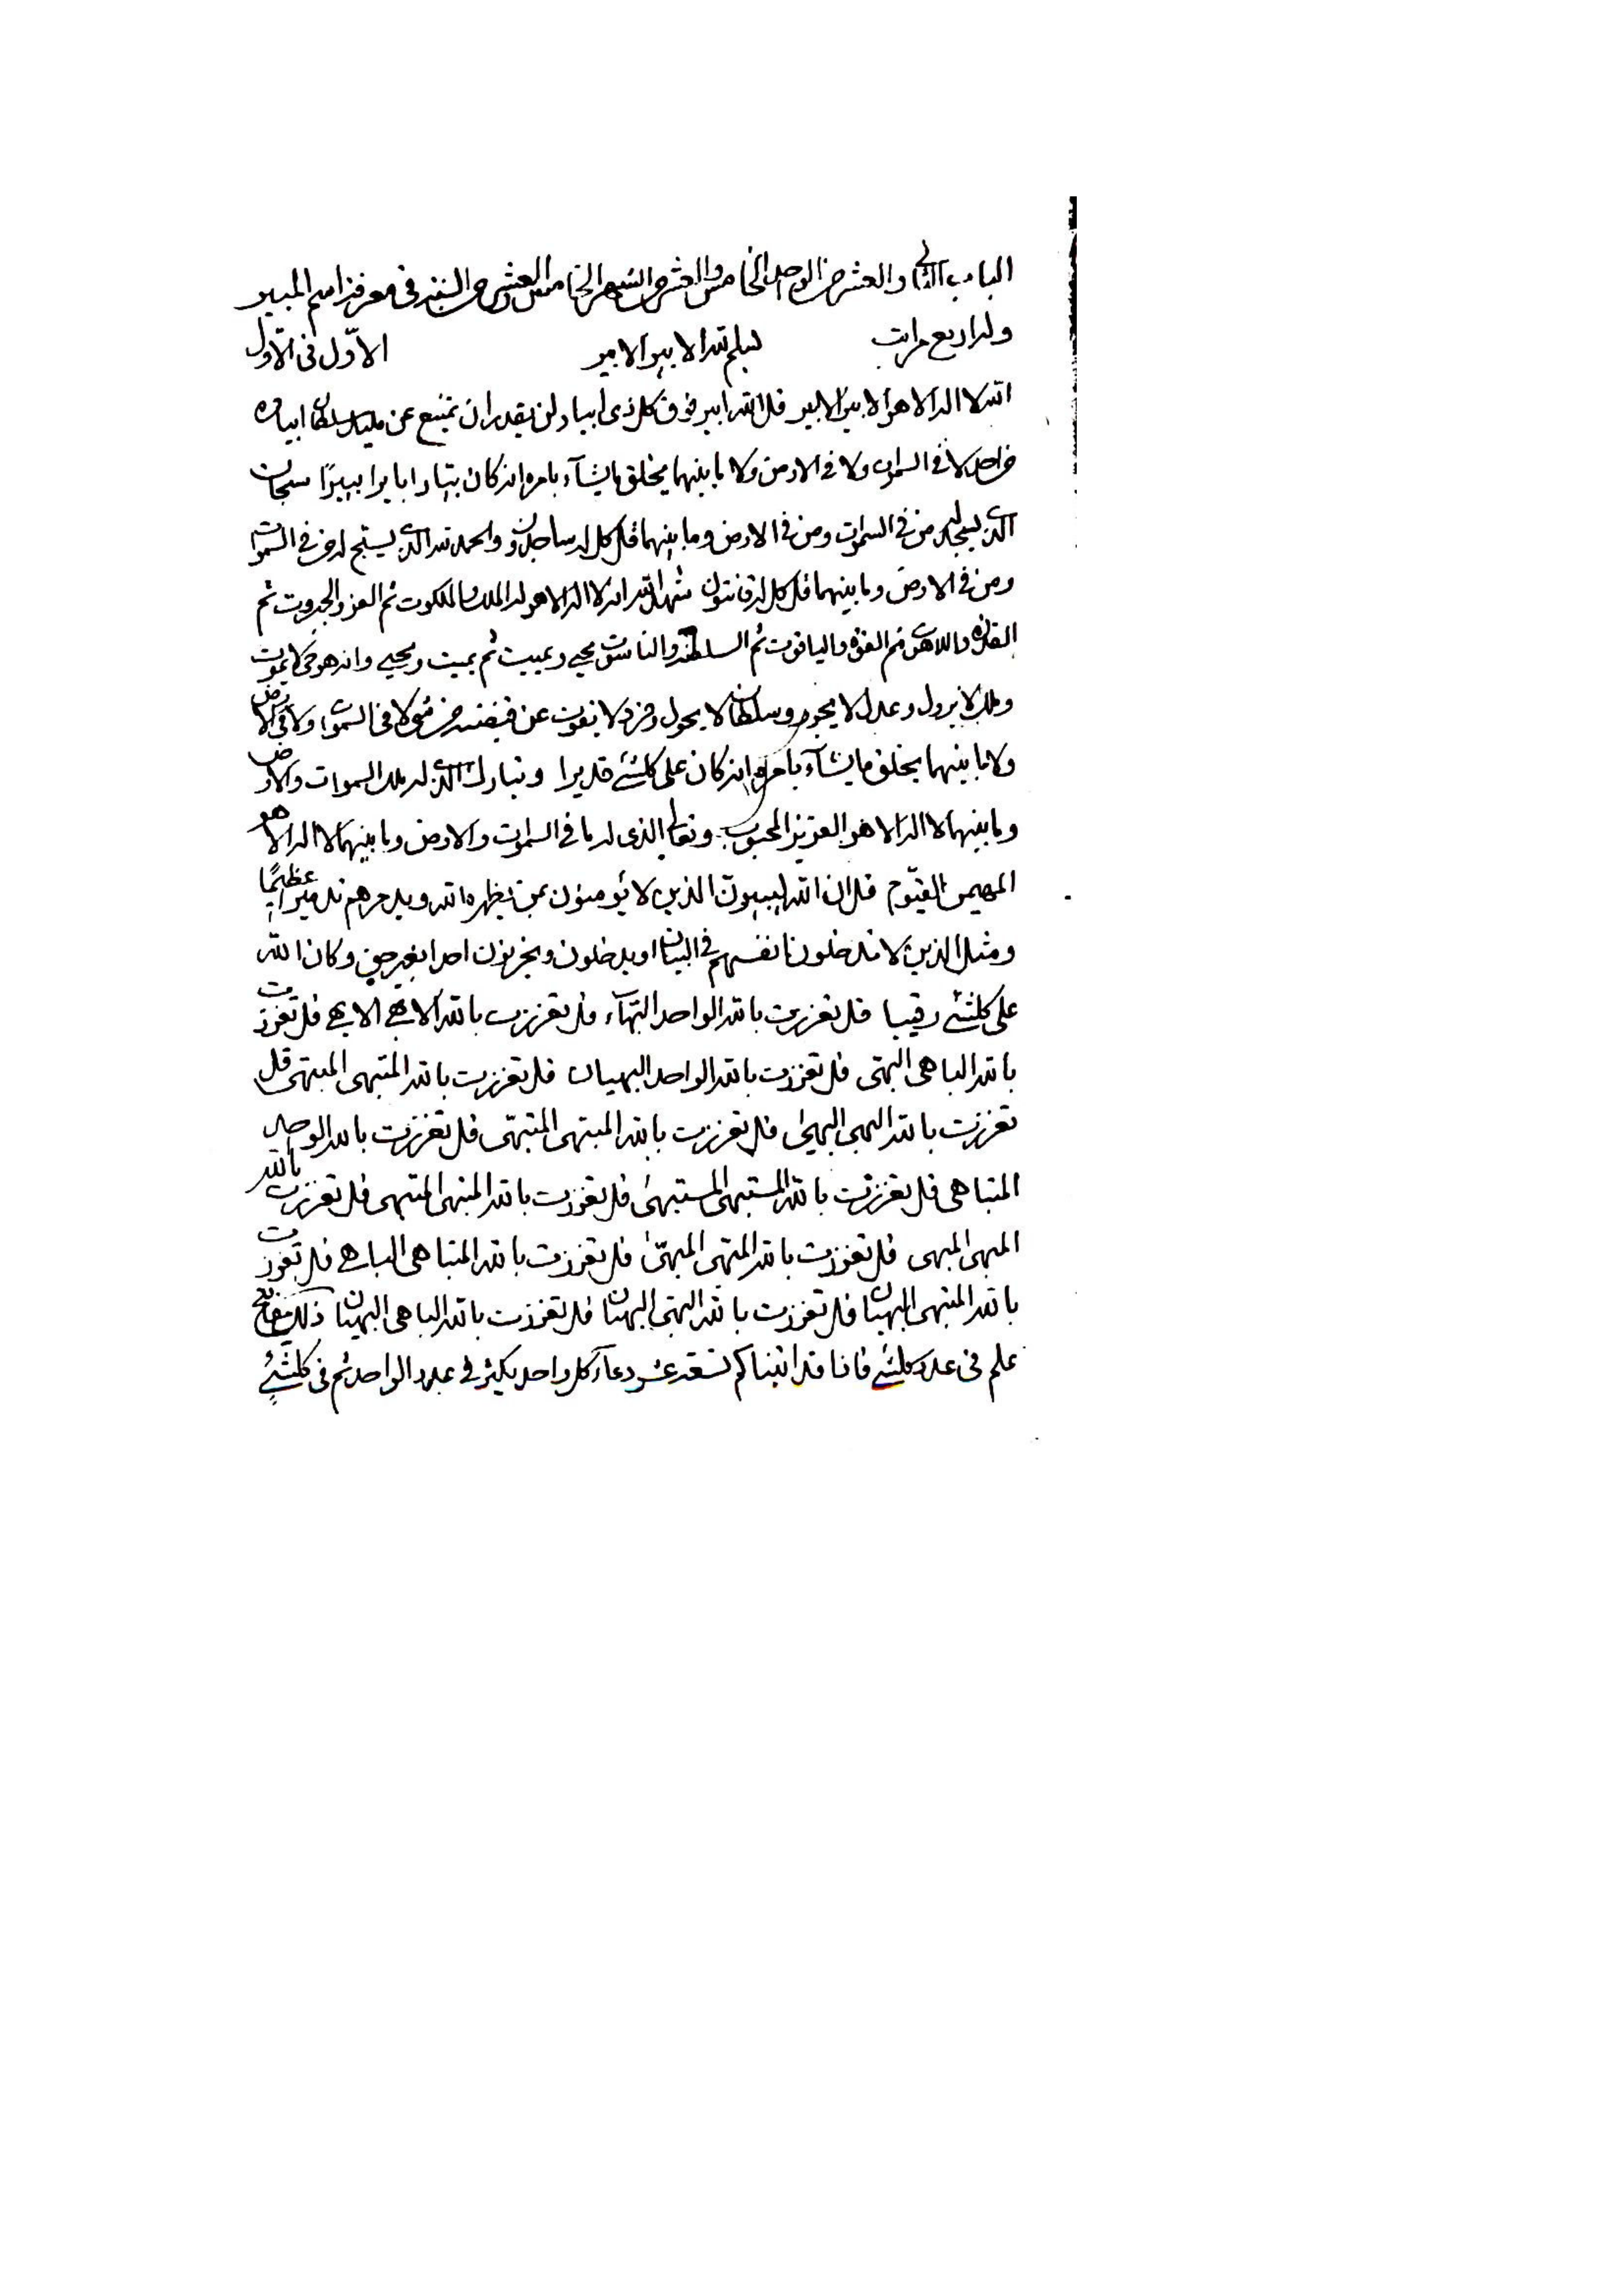 الباب الثاني والعشر من الواحد الخامس والعشر من الشهر الخامس والعشر من السنة في معرفة اسم المبير
وله اربع مراتب بسم الله الابير الابير الاول في الاول
الله لا اله الا هو الابير الابير قل الله ابير فوق كل ذي ابيار لن يقدر ان يمتنع عن مليك سلطان ابياره
من احد لا في السموات ولا في الارض ولا ما بينهما يخلق ما يشآء بامره انه كان بيارا بايرا بييرًا سبحان
الذي يسجد له من في السموات ومن في الارض وما بينهما قل كل له ساجدون والحمد لله الذي يسبح له من في السموات
ومن في الارض وما بينهما قل كل له قانتون شهد الله انه لا اله الا هو له الملك والملكوت ثم العز والجبروت ثم
القدرة واللاهوت ثم القوة والياقوت ثم السلطنة والناسوت يحيي ويميت ثم يميت ويحيي وانه هو حي لا يموت
وملك لا يزول وعدل لا يجور وسلطان لا يحول وفرد لا يفوت عن قبضته من شيء لا في السموات ولا في الارض
ولا ما بينهما يخلق ما يشآء بامره انه كان على كلشئ قديرا وتبارك الذي له ملك السموات والارض
وما بينهما لا اله الا هو العزيز المحبوب وتعالى الذي له ما في السموات والارض وما بينهما لا اله الا هو
المهيمن القيّوم قل ان الله ليبيرن الذين لا يؤمنون بمن يظهره الله ويدمرهم تدميرا عظيمًا
ومثل الذين لا يدخلون انفسهم في البيان او يدخلون ويحزنون احدا بغير حق وكان الله
على كلشئ رقيبا قل تعززت بالله الواحد البهآء قل تعززت بالله الابهى الابهى قل تعززت
بالله الباهي البهي قل تعززت بالله الواحد البهيان قل تعززت بالله المبتهى المبتهى قل
تعززت بالله البهي البهيى قل تعززت بالله المبتهى المتبهّى قل تعززت بالله الواحد
المتباهى قل تعززت بالله المستبهى المستبهى قل تعززت بالله المبتهى المبتهى قل تعززت بالله
المبهى المبهى قل تعززت بالله المبهى المبهّى قل تعززت بالله المتباهى الباهي قل تعززت
بالله المبتهى البهيان قل تعززت بالله البهي البهيان قل تعززت بالله الباهي البهيان ذلك مفاتيح
علم في عدد كلشئ فانا قد اتيناكم تسعة عشر دعآء كل واحد يكثر في عدد الواحد ثم في كلشئ